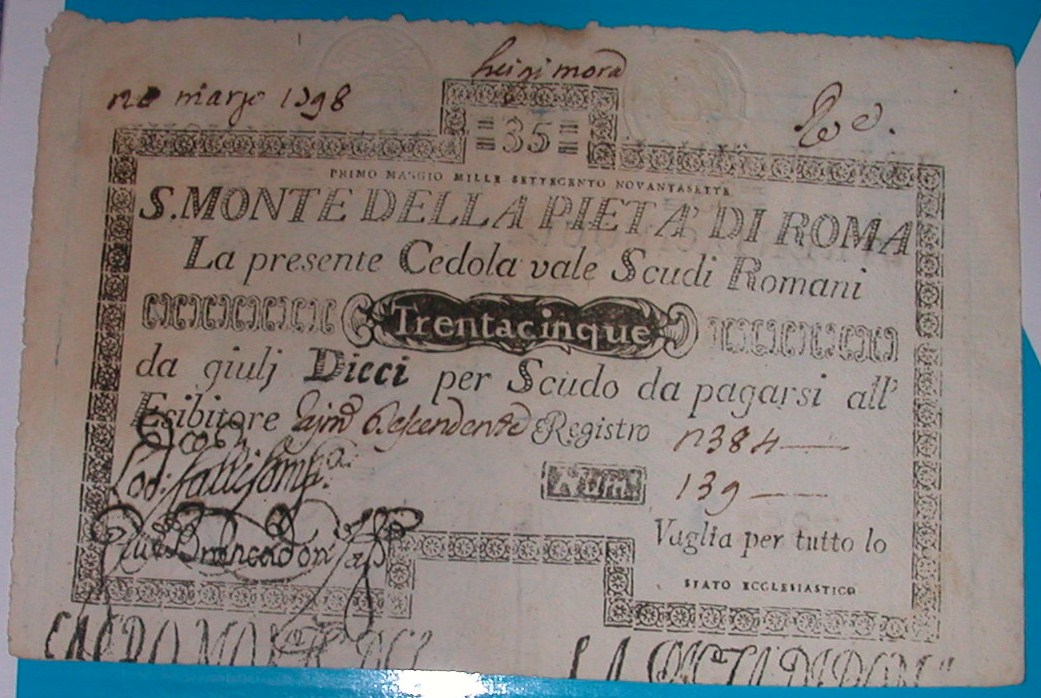 marzo 1798
= 35 =
PRIMO MAGGIO MILLE SETTECENTO NOVANTASETTE
S. MONTE DELLA PIETA' DI ROMA
La presente Cedola vale Scudi Romani
Trentacinque
da giulj Dieci per Scudo da pagarsi all'
Esibitore Registro n 384
Num. 139
Vaglia per tutto lo
STATO ECCLESIASTICO